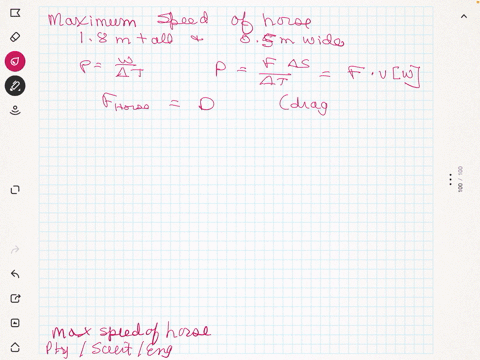 Maximum speed of horse
1.8 m tall & 0.5 m wide
P = W/ΔT   P = F ΔS/ΔT = F · v [W]
F_Horse = D   (drag
max speed of horse
Phy / Scient / Eng
100 / 100